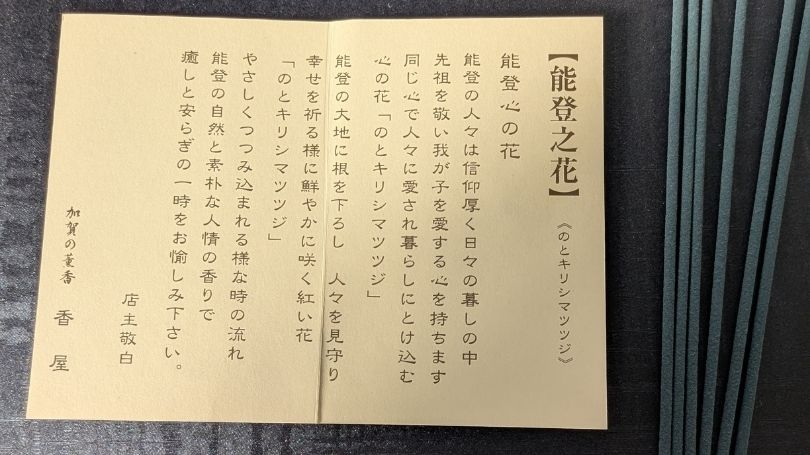 【能登之花】 《のとキリシマツツジ》
能登心の花
能登の人々は信仰厚く日々の暮しの中
先祖を敬い我が子を愛する心を持ちます
同じ心で人々に愛され暮らしにとけ込む
心の花「のとキリシマツツジ」
能登の大地に根を下ろし 人々を見守り
幸せを祈る様に鮮やかに咲く紅い花
「のとキリシマツツジ」
やさしくつつみ込まれる様な時の流れ
能登の自然と素朴な人情の香りで
癒しと安らぎの一時をお愉しみ下さい。
店主敬白
加賀の薫香 香屋